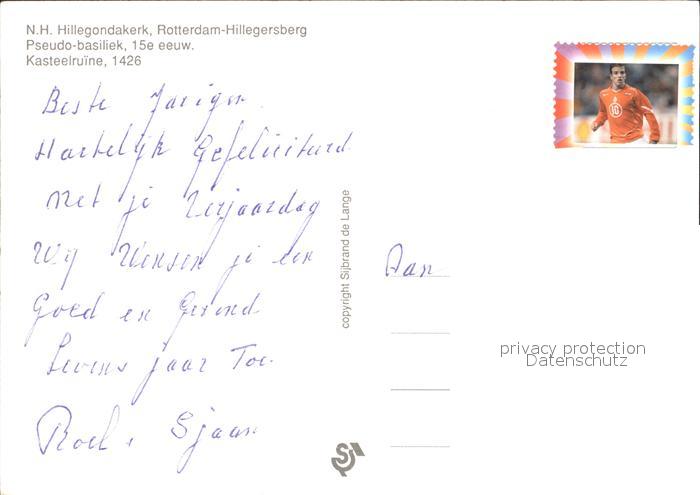 N.H. Hillegondakerk, Rotterdam-Hillegersberg
Pseudo-basiliek, 15e eeuw.
Kasteelruïne, 1426
Beste Jarige.
Hartelijk Gefeliciteerd
Met je Verjaardag
Wij Wensen je een
Goed en Gezond
Levens jaar Toe.
Roel. Sjaan
copyright Sijbrand de Lange
Aan
privacy protection
Datenschutz
10